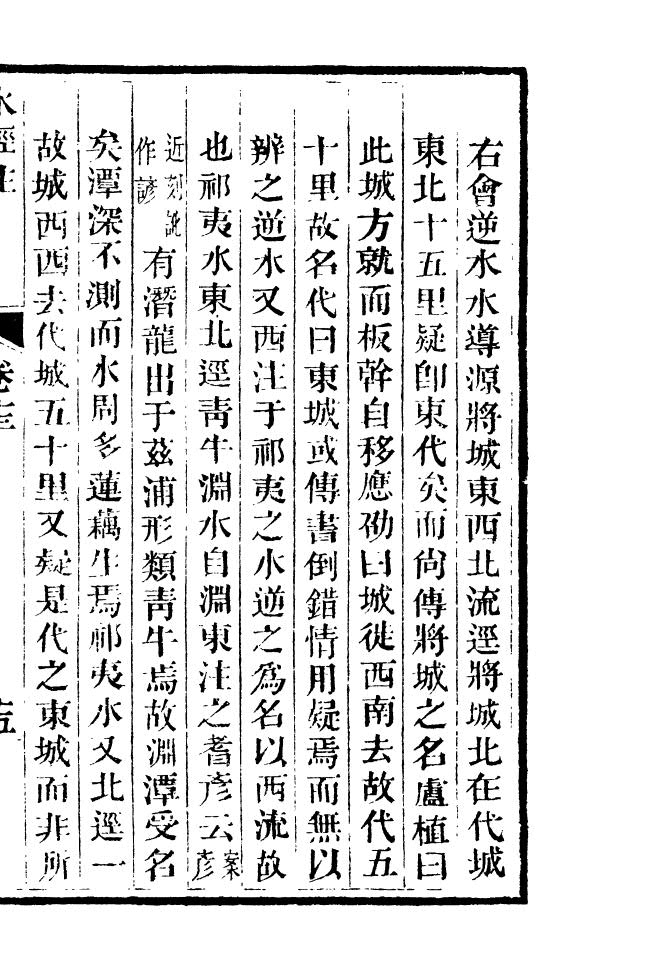 右會逆水水導源將城東西北流逕將城北在代城
東北十五里疑卽東代矣而尙傳將城之名盧植曰
此城方就而板幹自移應劭曰城徙西南去故代五
十里故名代曰東城或傳書倒錯情用疑焉而無以
辨之逆水又西注于祁夷之水逆之爲名以西流故
也祁夷水東北逕靑牛淵水自淵東注之耆彥云案彥
近刻訛作諺有潛龍出于茲浦形類靑牛焉故淵潭受名
矣潭深不測而水周多蓮藕生焉祁夷水又北逕一
故城西西去代城五十里又疑是代之東城而非所
水經注 卷十三 十五